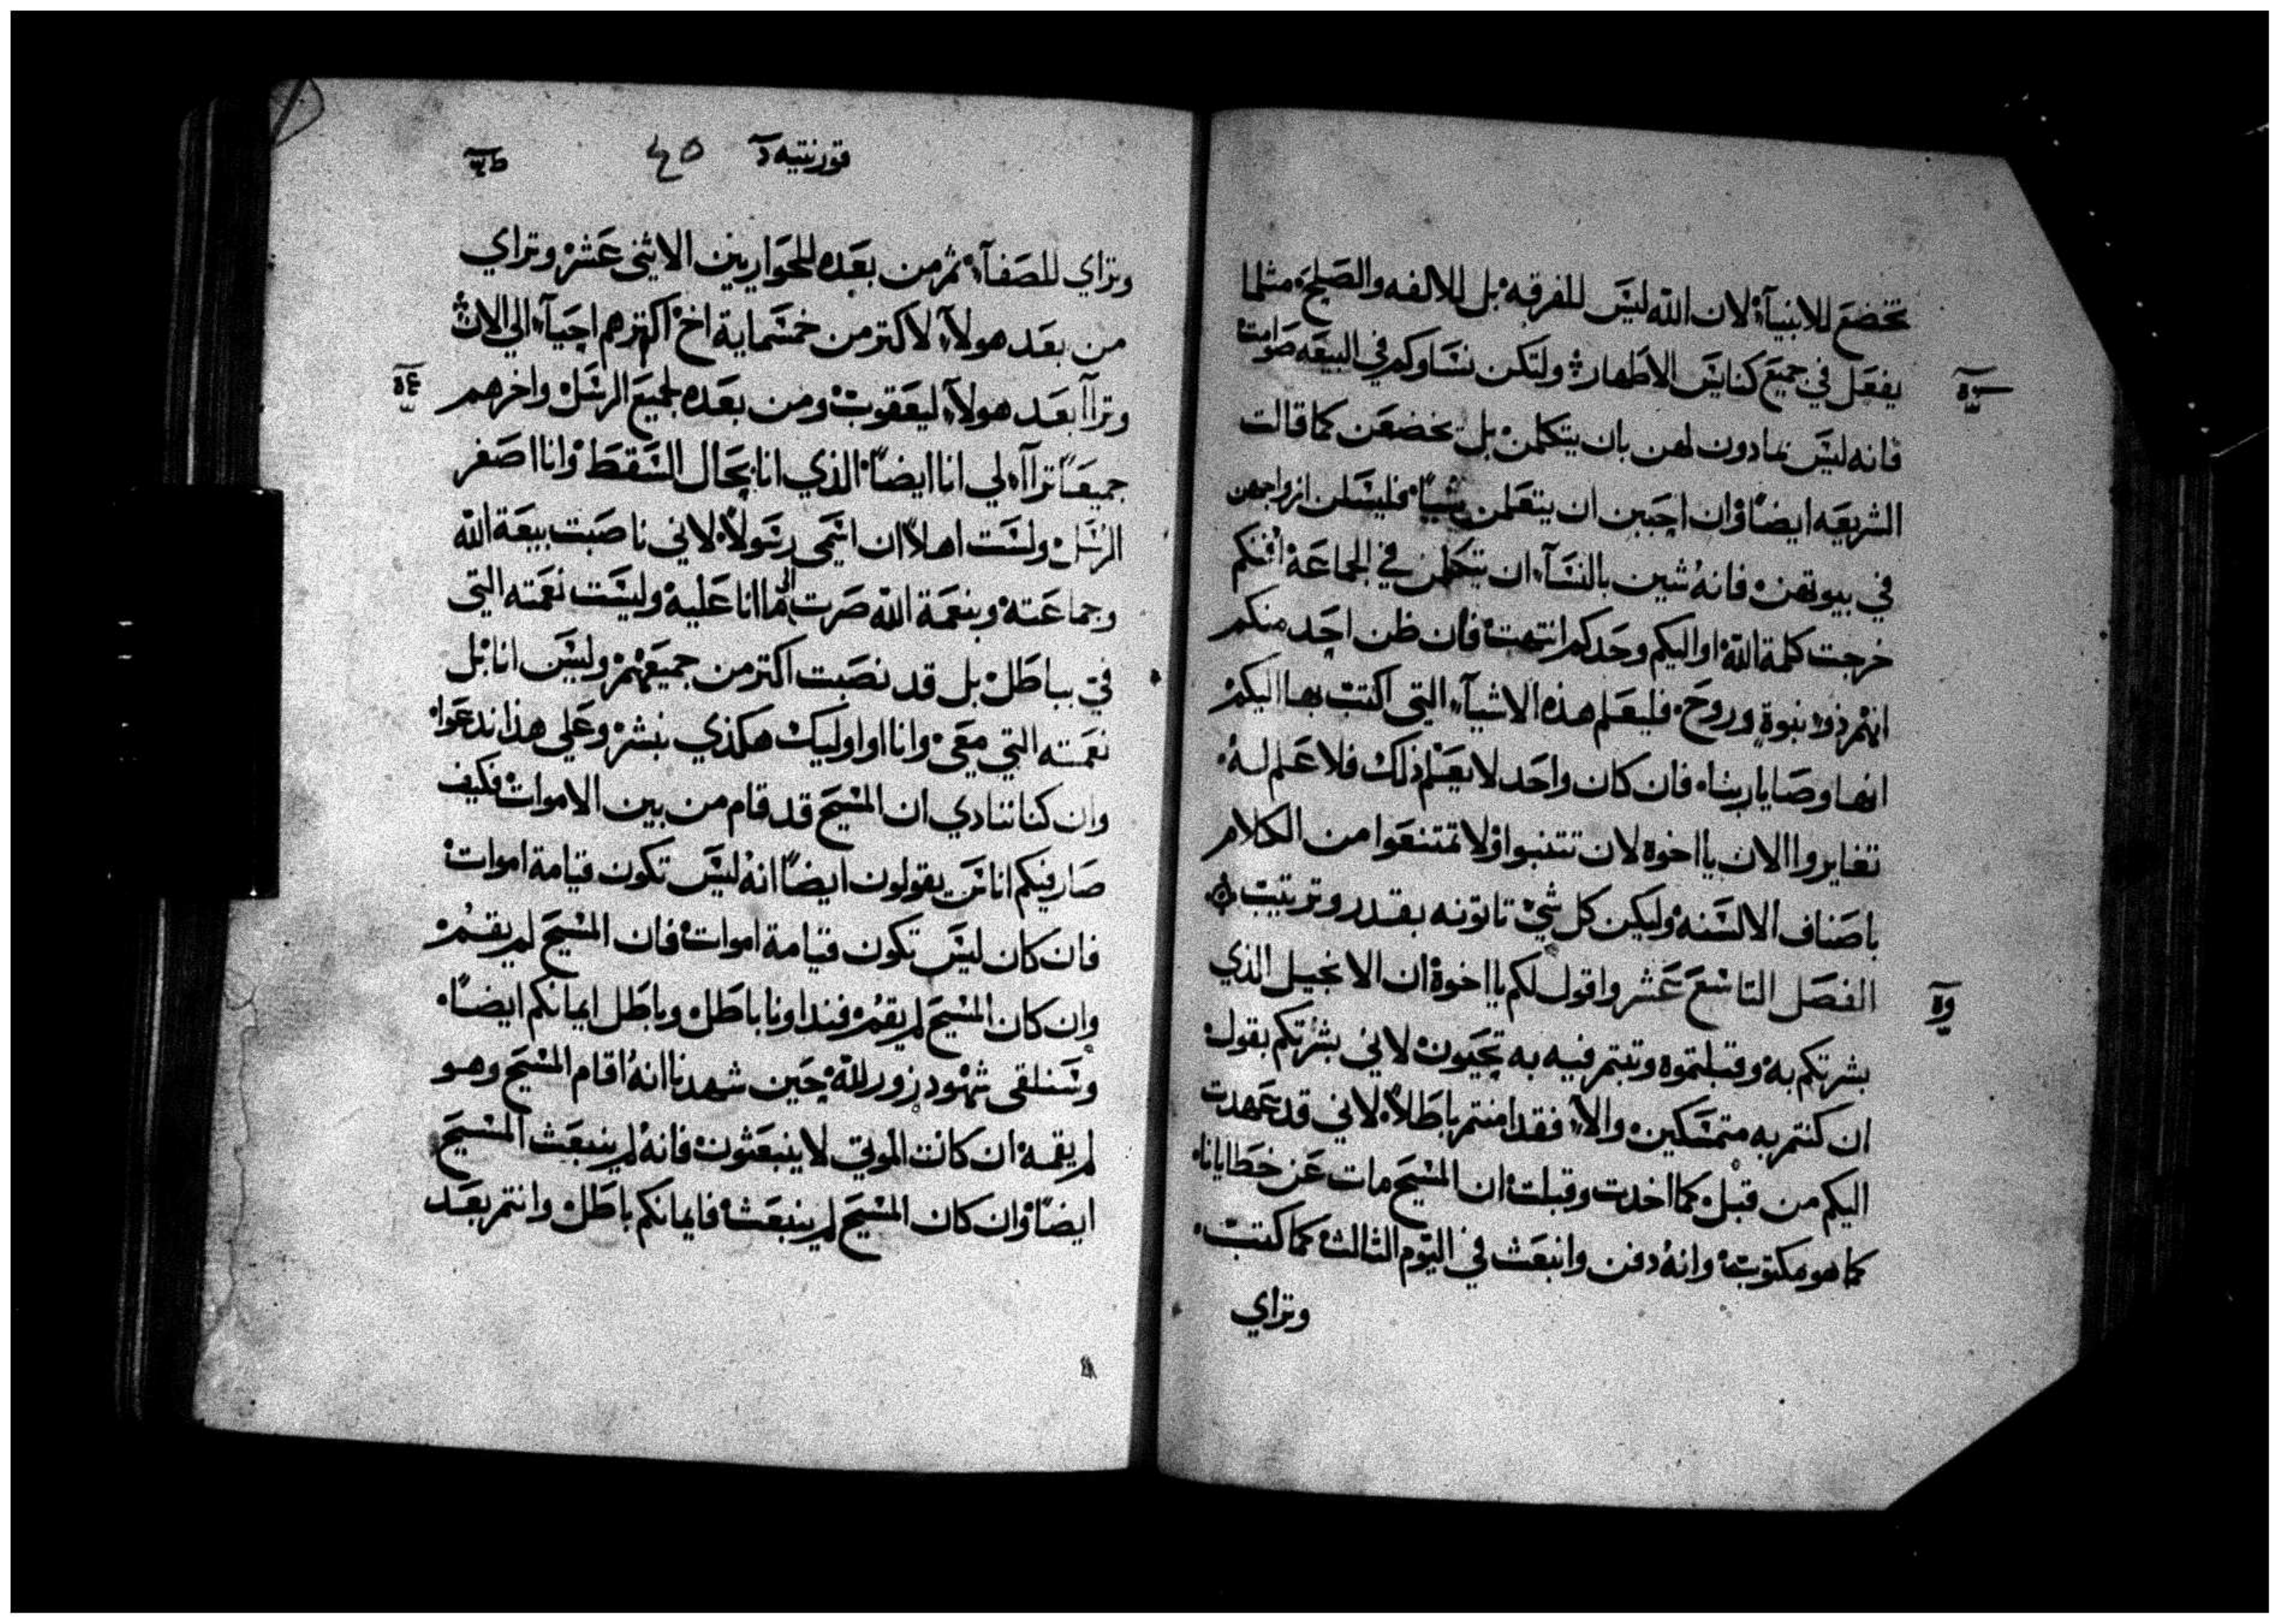 تخضع للانبيآء لان الله ليس للفرقه بل للالفه والصلح مثلما
يفعل في جميع كنايس الاطهار ولتكن نساوكم في البيعه صوامت
فانه ليس بمادون لهن بان يتكلمن بل يخضعن كما قالت
الشريعه ايضاً وان احببن ان يتعلمن شياً فليسلن ازواجهن
في بيوتهن فانهُ شين بالنسآء ان يتكلمن في الجماعة افمنكم
خرجت كلمة الله او اليكم وحدكم انتهت فان ظن احد منكم
انهُ ذو نبوة وروح فليعلم هذه الاشيآء التي اكتب بها اليكم
انها وصايا ربنا فان كان واحد لا يعلم ذلك فلا علم لهُ
تغايروا الان يا اخوه لان تتنبوا ولا تمتنعوا من الكلام
باصناف الالسنه وليكن كل شي تاتونه بقدر وترتيب
الفصل التاسع عشر واقول لكم يا اخوة ان الانجيل الذي
بشرتكم به وقبلتموه وثبتم فيه به تحيون لاني بشرتكم بقول
ان كنتم به متمسكين والا فقد امنتم باطلاً لاني قد عهدت
اليكم من قبل كما اخدت وقبلت ان المسيح مات عن خطايانا
كما هو مكتوب وانهُ دفن وانبعث في اليوم الثالث كما كتب
وتراي
قورنتيه
٤٥
وتراي للصفآء ثم من بعده للحواريين الاثنى عشر وتراي
من بعد هولآء لاكتر من خمسماية اخ اكترهم احيآء الي الان
وترآآ بعد هولآء ليعقوب ومن بعده لجميع الرسل واخرهم
جميعاً ترآآ لي انا ايضاً الذي انا بحال السقط وانا اصغر
الرسل ولست اهلاً ان اسمى رسولاً لاني ناصبت بيعة الله
وجماعته وبنعمة الله صرت الى ما انا عليه وليست نعمته التي
في بباطل بل قد نصبت اكتر من جميعهم وليس انا بل
نعمته التي معي وانا او اوليك هكذي نبشر وعلى هذا ندعوا
وان كنا ننادي ان المسيح قد قام من بين الاموات فكيف
صار فيكم اناس يقولون ايضاً انه ليس تكون قيامة اموات
فان كان ليس تكون قيامة اموات فان المسيح لم يقم
وان كان المسيح لم يقم فنداونا باطل وباطل ايمانكم ايضاً
وسنلقى شهود زور لله حين شهدنا انهُ اقام المسيح وهو
لم يقمه ان كانت الموتي لا ينبعثون فانهُ لم ينبعث المسيح
ايضاً وان كان المسيح لم ينبعث فايمانكم باطل وانتم بعد